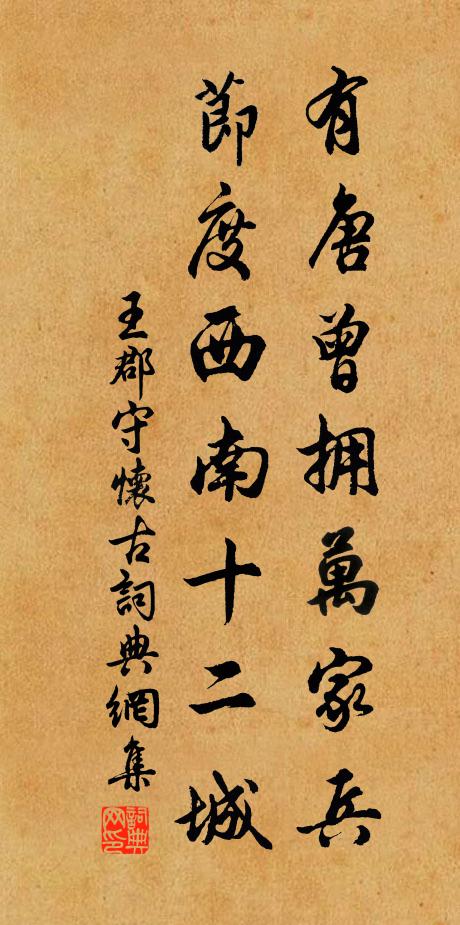 有唐曾拥萬家兵
節度西南十二城
王郡守懷古詞典網集
詞典网印